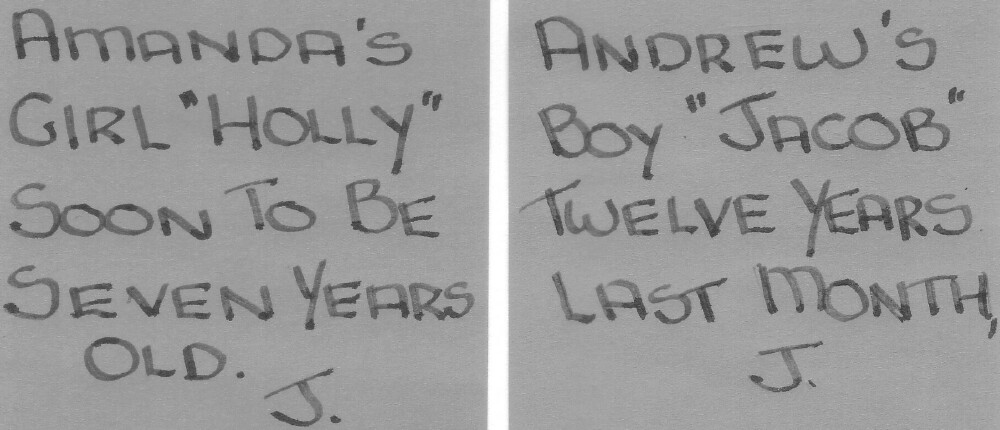 AMANDA'S
GIRL "HOLLY"
SOON TO BE
SEVEN YEARS
OLD.
J.
ANDREW'S
BOY "JACOB"
TWELVE YEARS
LAST MONTH,
J.